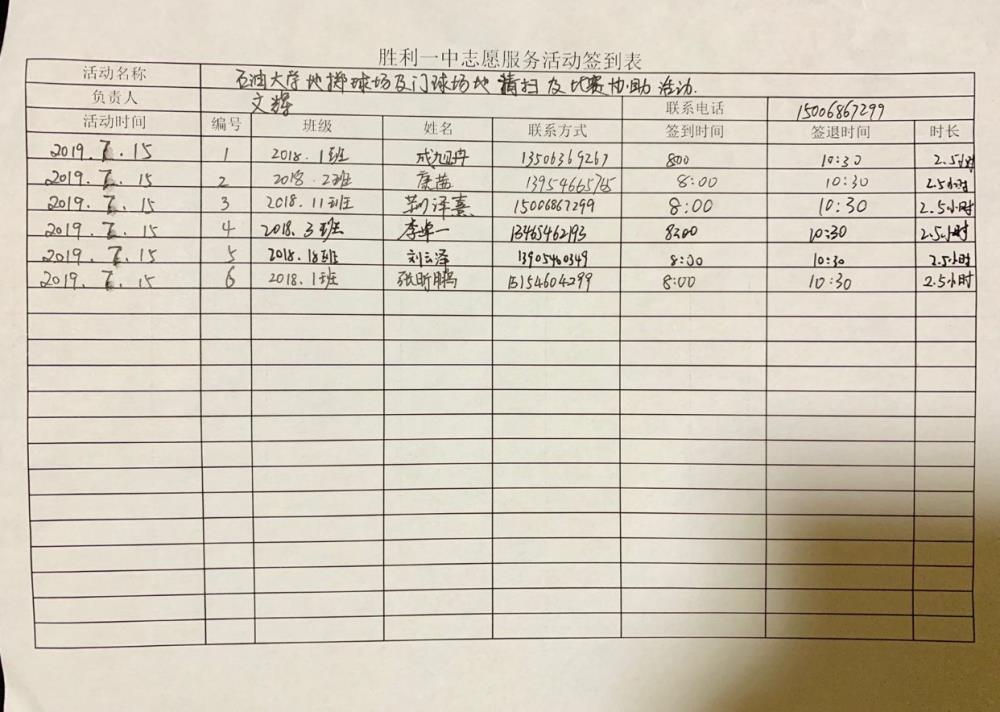 胜利一中志愿服务活动签到表
活动名称 石油大学地掷球场及门球场地清扫及比赛协助活动.
负责人 文辉 联系电话 15006867299
活动时间 编号 班级 姓名 联系方式 签到时间 签退时间 时长
2019.7.15 1 2018.1班 成旭冉 13506369267 800 10:30 2.5小时
2019.7.15 2 2018.2班 康茜 13954665765 8:00 10:30 2.5小时
2019.7.15 3 2018.11班 荆译熹 15006867299 8:00 10:30 2.5小时
2019.7.15 4 2018.3班 李卓一 13465462193 8:00 10:30 2.5小时
2019.7.15 5 2018.18班 刘云泽 13905460349 8:00 10:30 2.5小时
2019.7.15 6 2018.1班 张昕鹏 15154604299 8:00 10:30 2.5小时